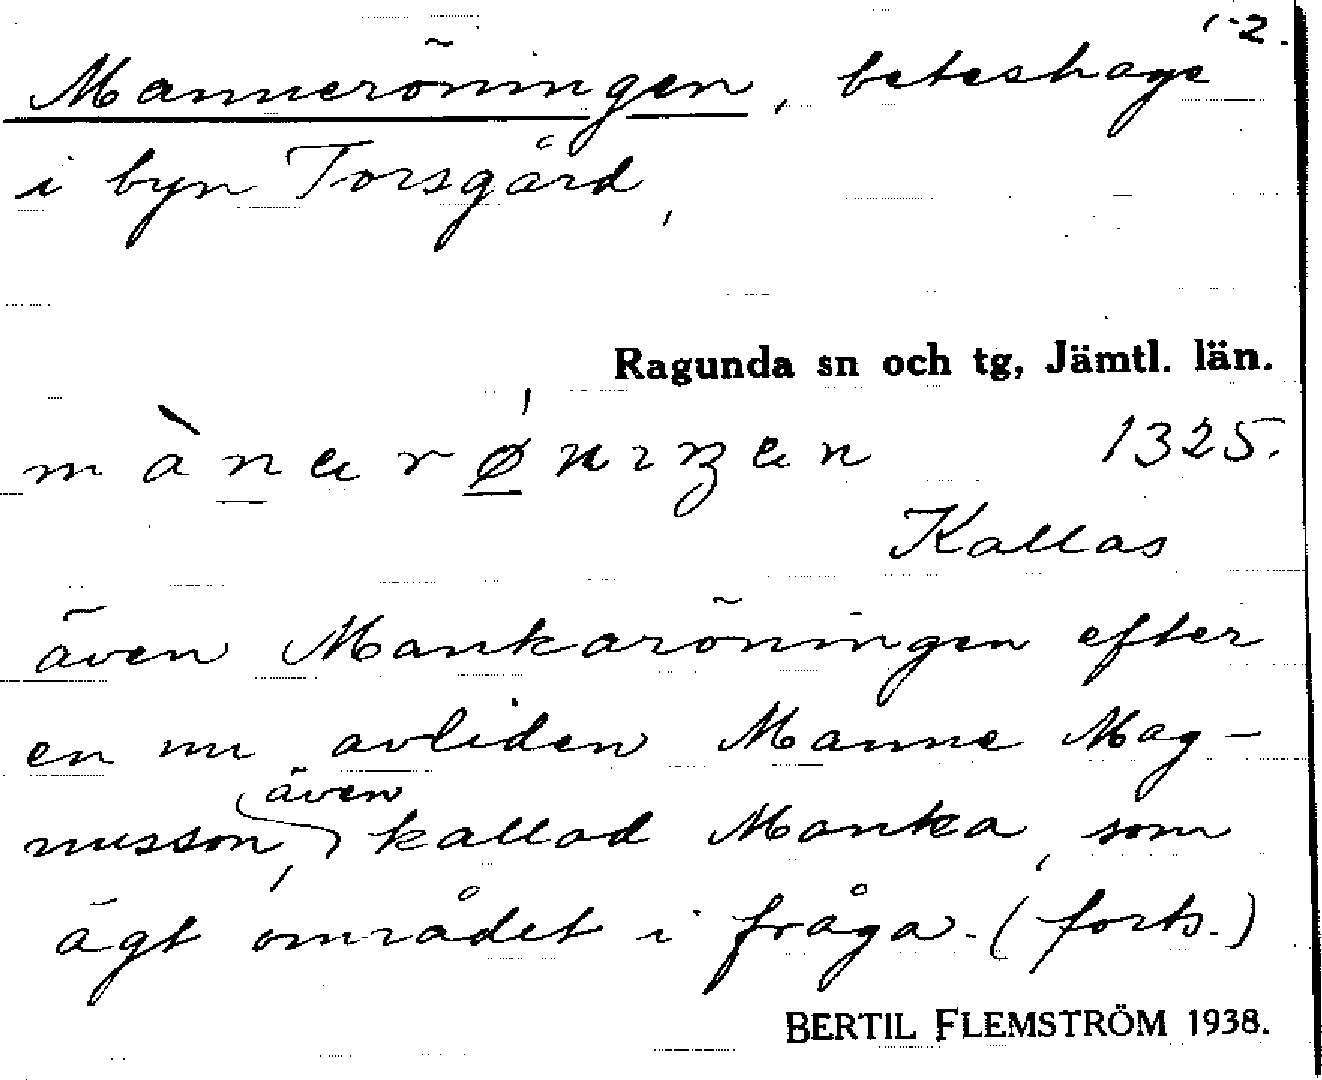 1-2.
Manneröningen, beteshage
i byn Torsgård,
Ragunda sn och tg, Jämtl. län.
1325.
Kallas
även Mankaröningen efter
en nu avliden Manne Mag-
nusson, även kallad Manka, som
ägt området i fråga. (forts.)
BERTIL FLEMSTRÖM 1938.